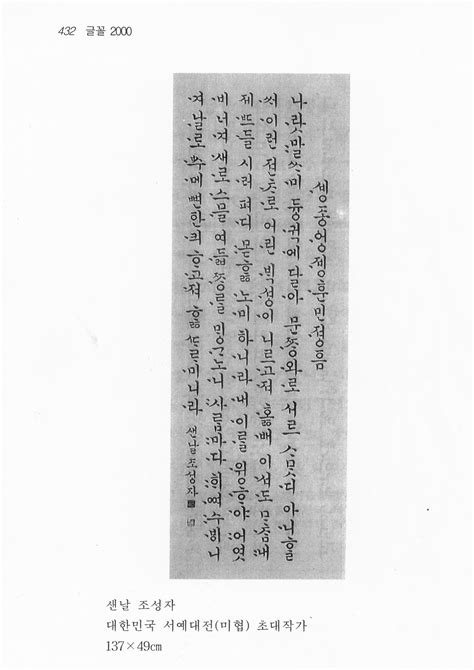 432 글꼴 2000
솅종왕졩훈민졍흠
나랏말ᄊᆞ미 듕귁에 달아 문ᄍᆞᆼ와로 서르 ᄉᆞᄆᆞᆺ디 아니ᄒᆞᆯ
ᄊᆡ 이런 젼ᄎᆞ로 어린 ᄇᆡᆨ셩이 니르고져 호ᇙ배 이셔도 ᄆᆞᄎᆞᆷ내
제 ᄠᅳ들 시러 펴디 몯ᄒᆞᇙ 노미 하니라 내 이ᄅᆞᆯ 윙ᄒᆞ야 어엿
비 너겨 새로 스믈 여듧 ᄍᆞᆼᄅᆞᆯ ᄆᆡᇰᄀᆞ노니 사ᄅᆞᆷ마다 ᄒᆡᅇᅧ 수ᄫᅵ 니
겨 날로 ᄡᅮ메 뼌한킈 ᄒᆞ고져 ᄒᆞᇙ ᄯᆞᄅᆞ미니라 샌날 조성자
샌날 조성자
대한민국 서예대전(미협) 초대작가
137×49cm